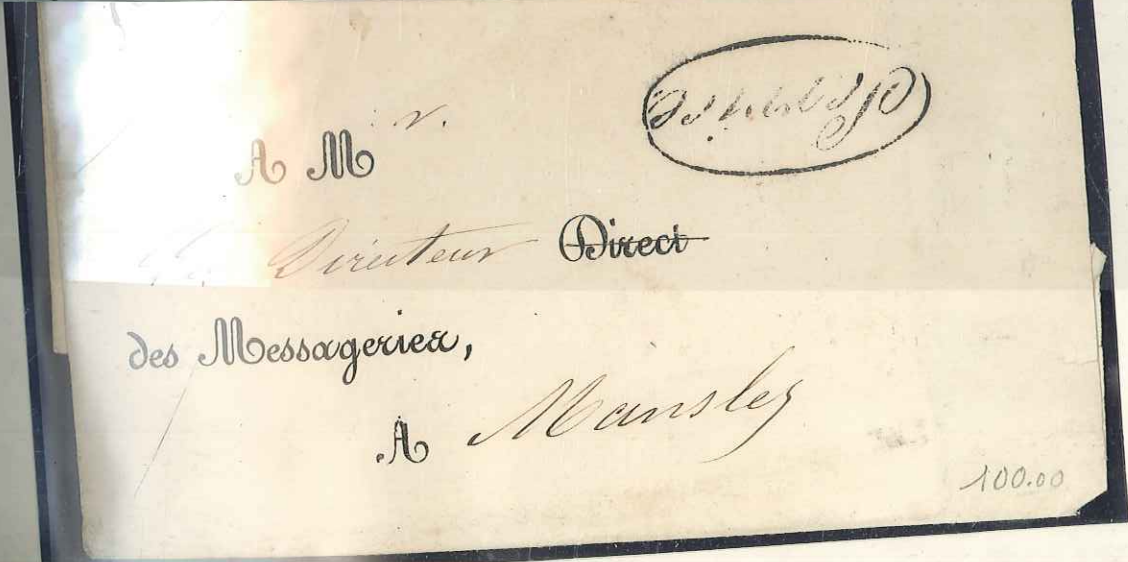 A M r.
Directeur Direct
des Messageries,
A Mansles
100.00